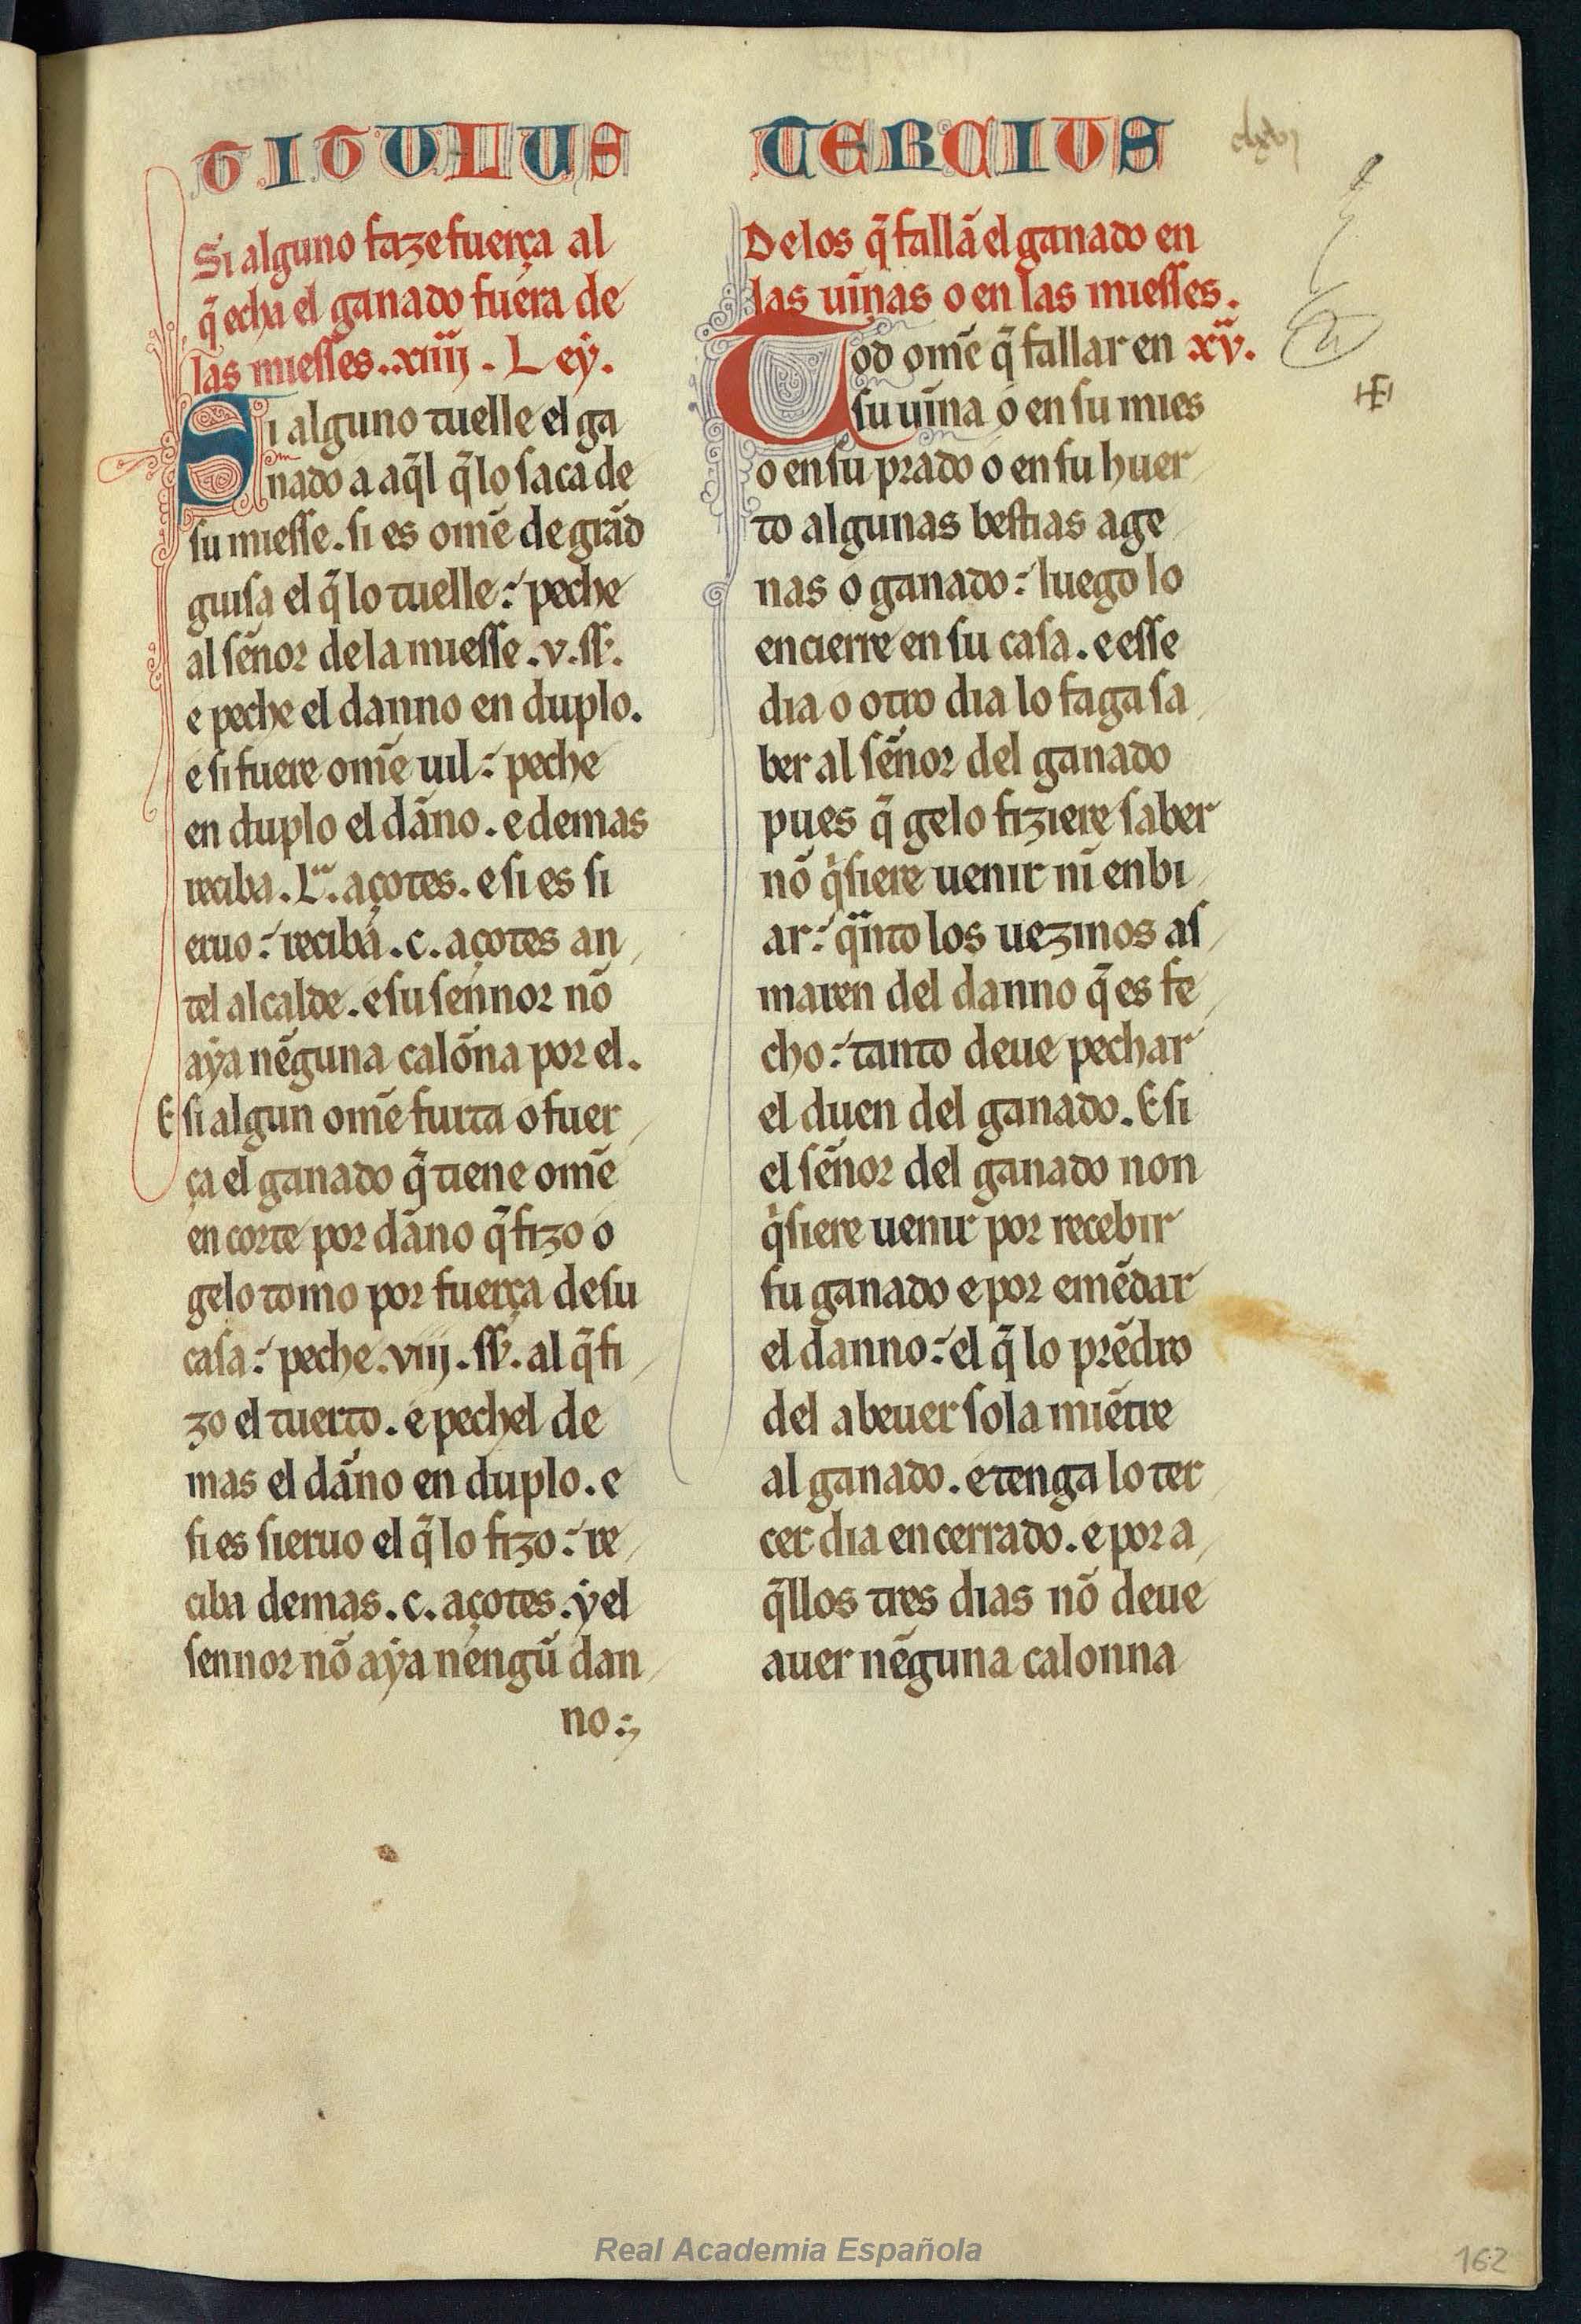 TITULUS
Si alguno faze fuerça al
q̃ echa el ganado fuera de
las miesses. .xiiij. Ley.
Si alguno tuelle el ga
nado a aq̃l q̃ lo saca de
su miesse. si es om̃e de grãd
guisa el q̃ lo tuelle: peche
al sẽnor de la miesse .v. ss̃.
e peche el danno en duplo.
e si fuere om̃e uil: peche
en duplo el dãno. e demas
reciba .L. açotes. e si es si
eruo: reciba .c. açotes an
tel alcalde. e su sennor nõ
aẏa nẽguna calõna por el.
E si algun om̃e furta o fuer
ça el ganado q̃ tiene om̃e
en corte por dãno q̃ fizo o
gelo tomo por fuerça de su
casa: peche .viij. ss̃. al q̃ fi
zo el tuerto. e pechel de
mas el dãno en duplo. e
si es sieruo el q̃ lo fizo: re
ciba demas .c. açotes. ẏ el
sennor nõ aẏa nengũ dan
no:
TERCIUS
clxbj
De los q̃ fallã el ganado en
las uiñas o en las miesses.
Tod om̃e q̃ fallar en xv.
su uiña o en su mies
o en su prado o en su huer
to algunas bestias age
nas o ganado: luego lo
encierre en su casa. e esse
dia o otro dia lo faga sa
ber al sẽnor del ganado
pues q̃ gelo fiziere saber
nõ q̃siere uenir nĩ enbi
ar: q̃nto los uezinos as
maren del danno q̃ es fe
cho: tanto deue pechar
el duen del ganado. E si
el sẽnor del ganado non
q̃siere uenir por recebir
su ganado e por emẽdar
el danno: el q̃ lo prẽdro
del a beuer sola miẽtre
al ganado. e tenga lo ter
cer dia encerrado. e por a
q̃llos tres dias nõ deue
auer nẽguna calonna
Real Academia Española
162